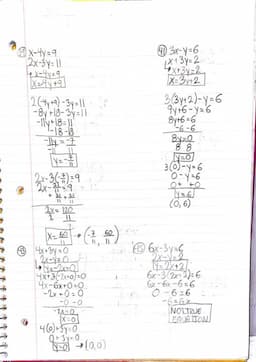 x-4y=9
2x-3y=11
+x-4y=9
x=4y+9
2(-4y+9)-3y=11
-8y+18-3y=11
-11y+18=11
-18 -18
-11y=-7
-11 11
y=-7/11
2x-3(-7/11)=9
2x=120
x=60/11 → (-7/11, 60/11)
4x+3y=0
2x-y=0
4x+3(-2x+0)=0
4x-6x+0=0
-2x+0=0
-0 -0
-2x=0
x=0
4(0)+3y=0
0+3y=0
y=0 → (0,0)
41 3x-y=6
x+3y=2
+x+3y=2
x=3y+2
3(3y+2)-y=6
9y+6-y=6
8y+6=6
-6 -6
8y=0
8 8
y=0
3(0)-y=6
0-y=6
0+ +0
y=6
(0,6)
45 6x-3y=6
2x-y=2
y=2x+2
6x-3(2x-2)=6
6x-6x-6=6
0-6=6
-6=6x
NOT TRUE
EQUATION